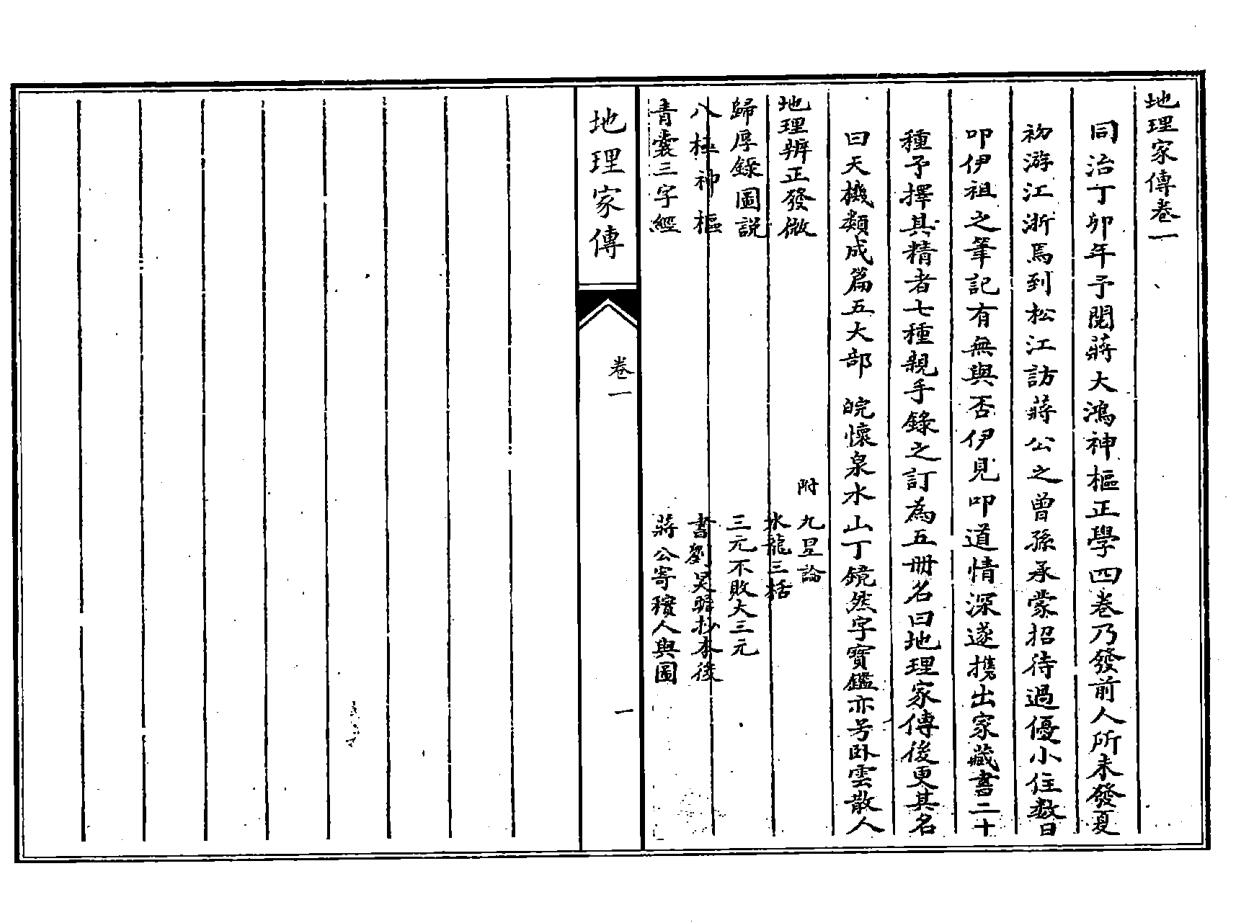 地理家傳卷一
同治丁卯年予閱蔣大鴻神樞正學四卷乃發前人所未發夏
初游江浙焉到松江訪蔣公之曾孫承蒙招待過優小住数日
叩伊祖之筆記有無與否伊見叩道情深遂携出家藏書二十
種予擇其精者七種親手錄之訂為五冊名曰地理家傳後更其名
曰天機類成篇五大部 皖懷泉水山丁鏡然字寶鑑亦号卧雲散人
地理辨正發微
附 九星論
水龍三括
歸厚錄圖説
三元不敗大三元
八極神樞
書劉昊昭抄本後
青囊三字經
蔣公寄穙人與圖
地理家傳
卷一
一